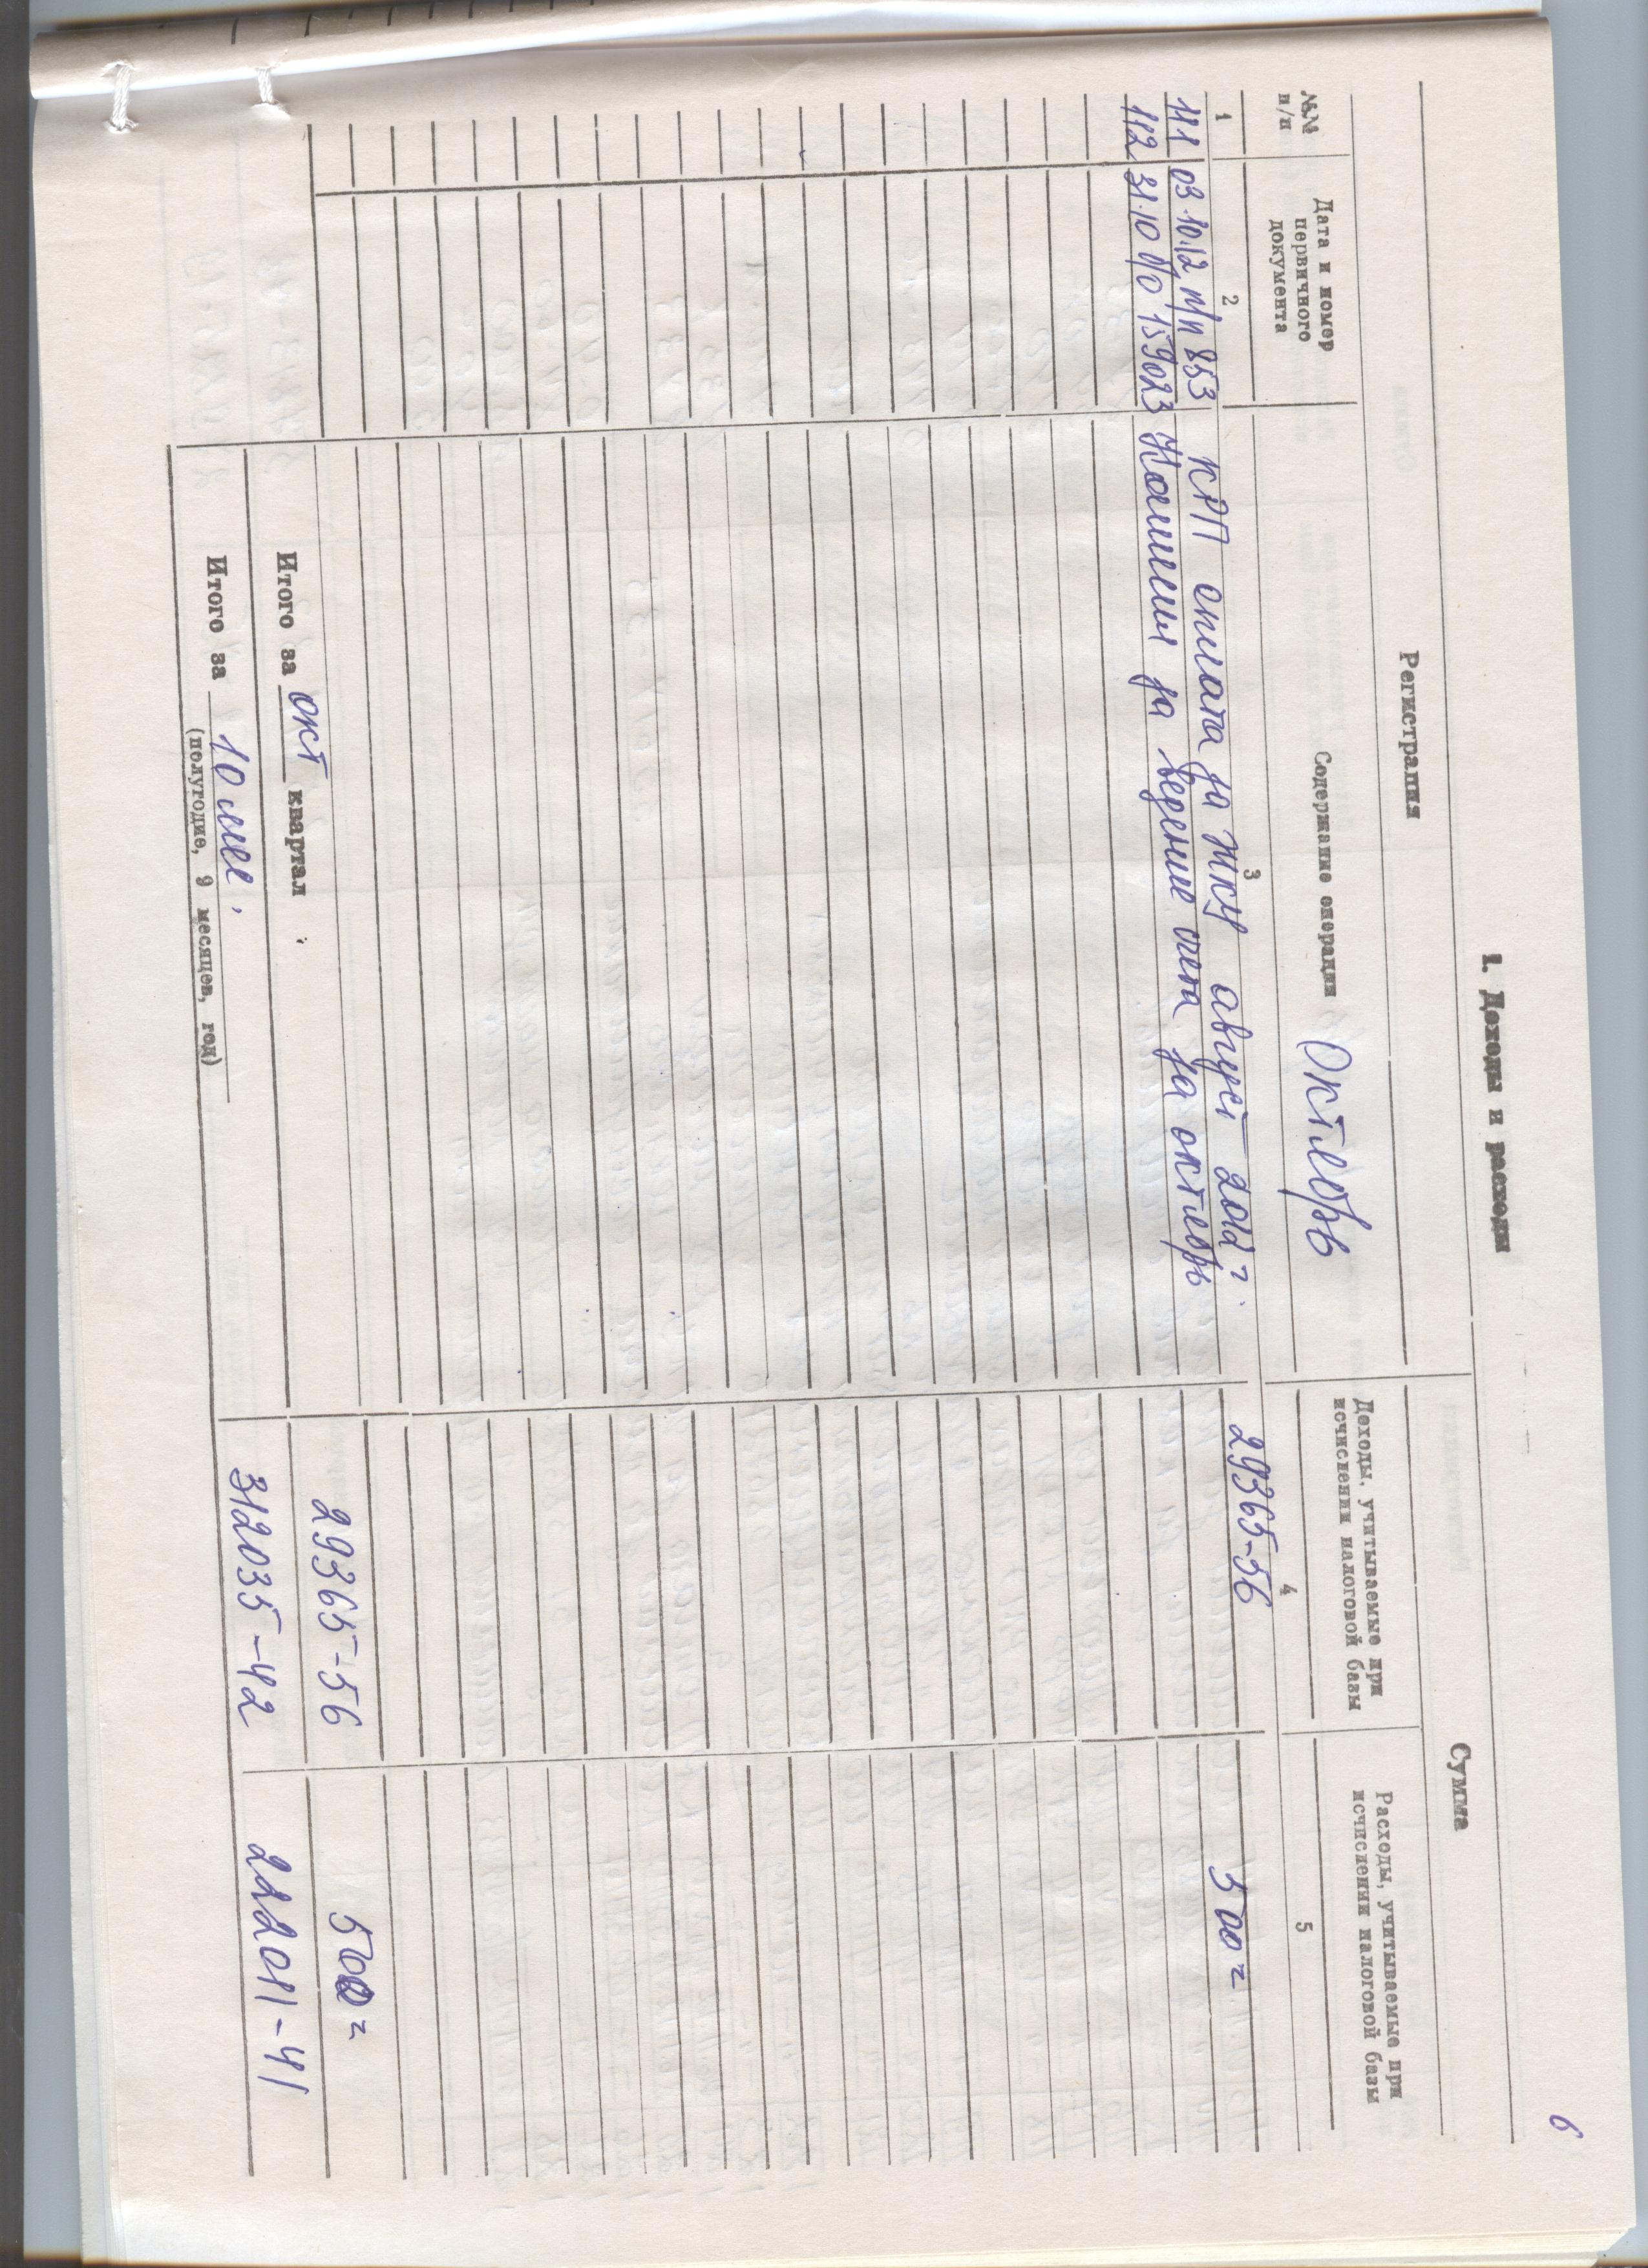 6
1. Доходы и расходы
Регистрация Сумма
№№ п/п
Дата и номер первичного документа
Содержание операции Октябрь
Доходы, учитываемые при исчислении налоговой базы
Расходы, учитываемые при исчислении налоговой базы
1 2 3 4 5
111 03.10.12 п/п 853 КРП оплата за ЖКУ август 2012 г. 29365-56
112 31.10 б/о 159023 Комиссия за ведение счета за октябрь 500=
Итого за окт квартал 29365-56 500=
Итого за 10 мес. 312035-42 222011-41
(полугодие, 9 месяцев, год)